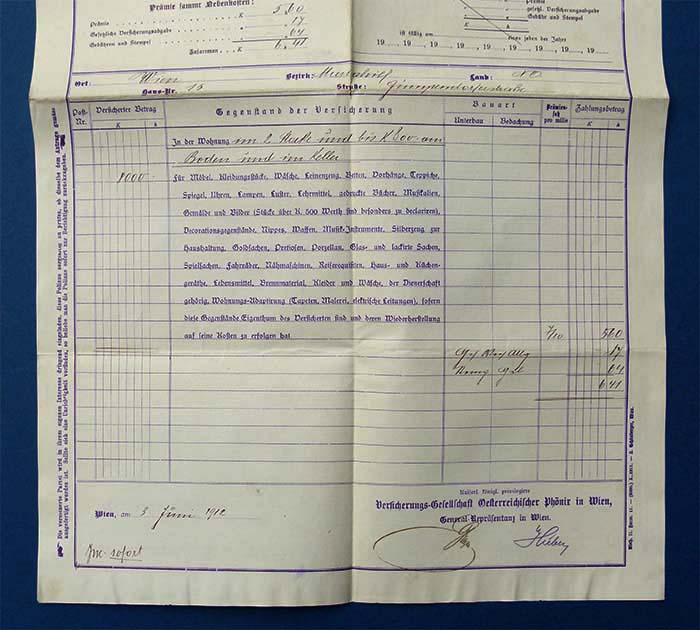 Prämie sammt Nebenkosten:
K h
Prämie 5 60
Gesetzliche Versicherungsabgabe 17
Gebühren und Stempel 64
Zusammen K 6.41
Prämie
gesetzl. Versicherungsabgabe
Gebühr und Stempel
K h
ist fällig am eines jeden der Jahre
19 19 19 19 19 19 19 19 19
Ort: Wien Bezirk: Land: NÖ
Haus-Nr. 15 Straße: Gumpendorferstraße
Post-Nr. Versicherter Betrag Gegenstand der Versicherung Bauart Prämiensatz pro mille Zahlungsbetrag
K h Unterbau Bedachung K h
In der Wohnung im 2 Stocke und bis K 800 am
Boden und im Keller
8000 Für Möbel, Kleidungsstücke, Wäsche, Leinenzeug, Betten, Vorhänge, Teppiche,
Spiegel, Uhren, Lampen, Luster, Lehrmittel, gedruckte Bücher, Musikalien,
Gemälde und Bilder (Stücke über K. 500 Werth sind besonders zu declariren),
Decorationsgegenstände, Nippes, Waffen, Musik-Instrumente, Silberzeug zur
Haushaltung, Goldsachen, Pretiosen, Porzellan, Glas- und lackirte Sachen,
Spielsachen, Fahrräder, Nähmaschinen, Reiserequisiten, Haus- und Küchen-
geräthe, Lebensmittel, Brennmaterial, Kleider und Wäsche, der Dienerschaft
gehörig, Wohnungs-Adaptirung (Tapeten, Malerei, elektrische Leitungen), sofern
diese Gegenstände Eigenthum des Versicherten sind und deren Wiederherstellung
auf seine Kosten zu erfolgen hat. 7/10 5 60
17
64
6 41
Kaiserl. Königl. privilegirte
Versicherungs-Gesellschaft Oesterreichischer Phönix in Wien,
General-Repräsentanz in Wien.
Wien, am 3 Juni 1912
sofort
Die versicherte Partei wird in ihrem eigenen Interesse dringend eingeladen, diese Polizze sorgsam zu prüfen, ob dieselbe dem Antrage gemäss
ausgefertigt worden ist. Sollte sich eine Unrichtigkeit vorfinden, so beliebe man die Polizze sofort zur Berichtigung zurückzugeben.